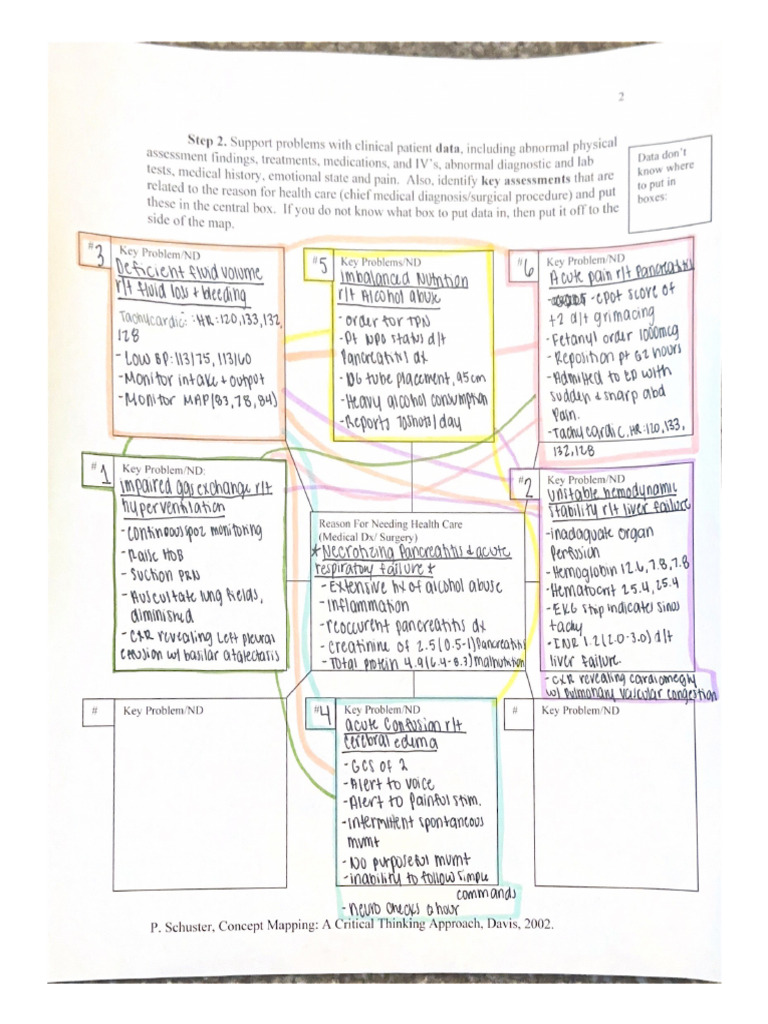 2
Step 2. Support problems with clinical patient data, including abnormal physical
assessment findings, treatments, medications, and IV's, abnormal diagnostic and lab
tests, medical history, emotional state and pain. Also, identify key assessments that are
related to the reason for health care (chief medical diagnosis/surgical procedure) and put
these in the central box. If you do not know what box to put data in, then put it off to the
side of the map.
Data don't
know where
to put in
boxes:
#3
Key Problem/ND
Deficient fluid volume
r/t fluid loss + bleeding
Tachycardic: HR: 120, 133, 132,
128
- Low BP: 113/75, 113/60
- Monitor intake + output
- Monitor MAP (83, 78, 84)
#5
Key Problems/ND
Imbalanced Nutrition
r/t Alcohol abuse
- order for TPN
- Pt NPO status d/t
Pancreatitis dx
- NG tube placement, 95cm
- Heavy alcohol consumption
- Reports 70shots/day
#6
Key Problem/ND
Acute pain r/t Pancreatitis
- CPOT score of
+2 d/t grimacing
- Fetanyl order 1000mcg
- Reposition pt Q2 hours
- Admitted to ED with
sudden + sharp abd
Pain.
- Tachycardic, HR: 120, 133,
132, 128
#1
Key Problem/ND:
impaired gas exchange r/t
hyperventilation
- continuous spo2 monitoring
- Raise HOB
- Suction PRN
- Auscultate lung fields,
diminished
- CXR revealing Left pleural
effusion w/ basilar atalectasis
Reason For Needing Health Care
(Medical Dx/ Surgery)
* Necrotizing Pancreatitis & acute
respiratory failure *
- Extensive hx of alcohol abuse
- Inflammation
- reoccurent pancreatitis dx
- creatinine of 2.5 (0.5-1) Pancreatitis
- Total protein 4.9 (6.4-8.3) malnutrition
#2
Key Problem/ND
Unstable hemodynamic
Stability r/t liver failure
- inadaquate organ
Perfusion
- Hemoglobin 12.6, 7.8, 7.8
- Hematocrit 25.4, 25.4
- EKG strip indicates sinus
tachy
- INR 1.2 (2.0-3.0) d/t
liver failure.
- CXR revealing cardiomegly
w/ pulmonary vascular congestion
#
Key Problem/ND
#4
Key Problem/ND
acute confusion r/t
cerebral edema
- GCS of 2
- Alert to voice
- Alert to Painful stim.
- Intermittent spontaneous
mvmt
- No purposeful mvmt
- inability to follow simple
commands
- neuro checks Q hour
#
Key Problem/ND
P. Schuster, Concept Mapping: A Critical Thinking Approach, Davis, 2002.